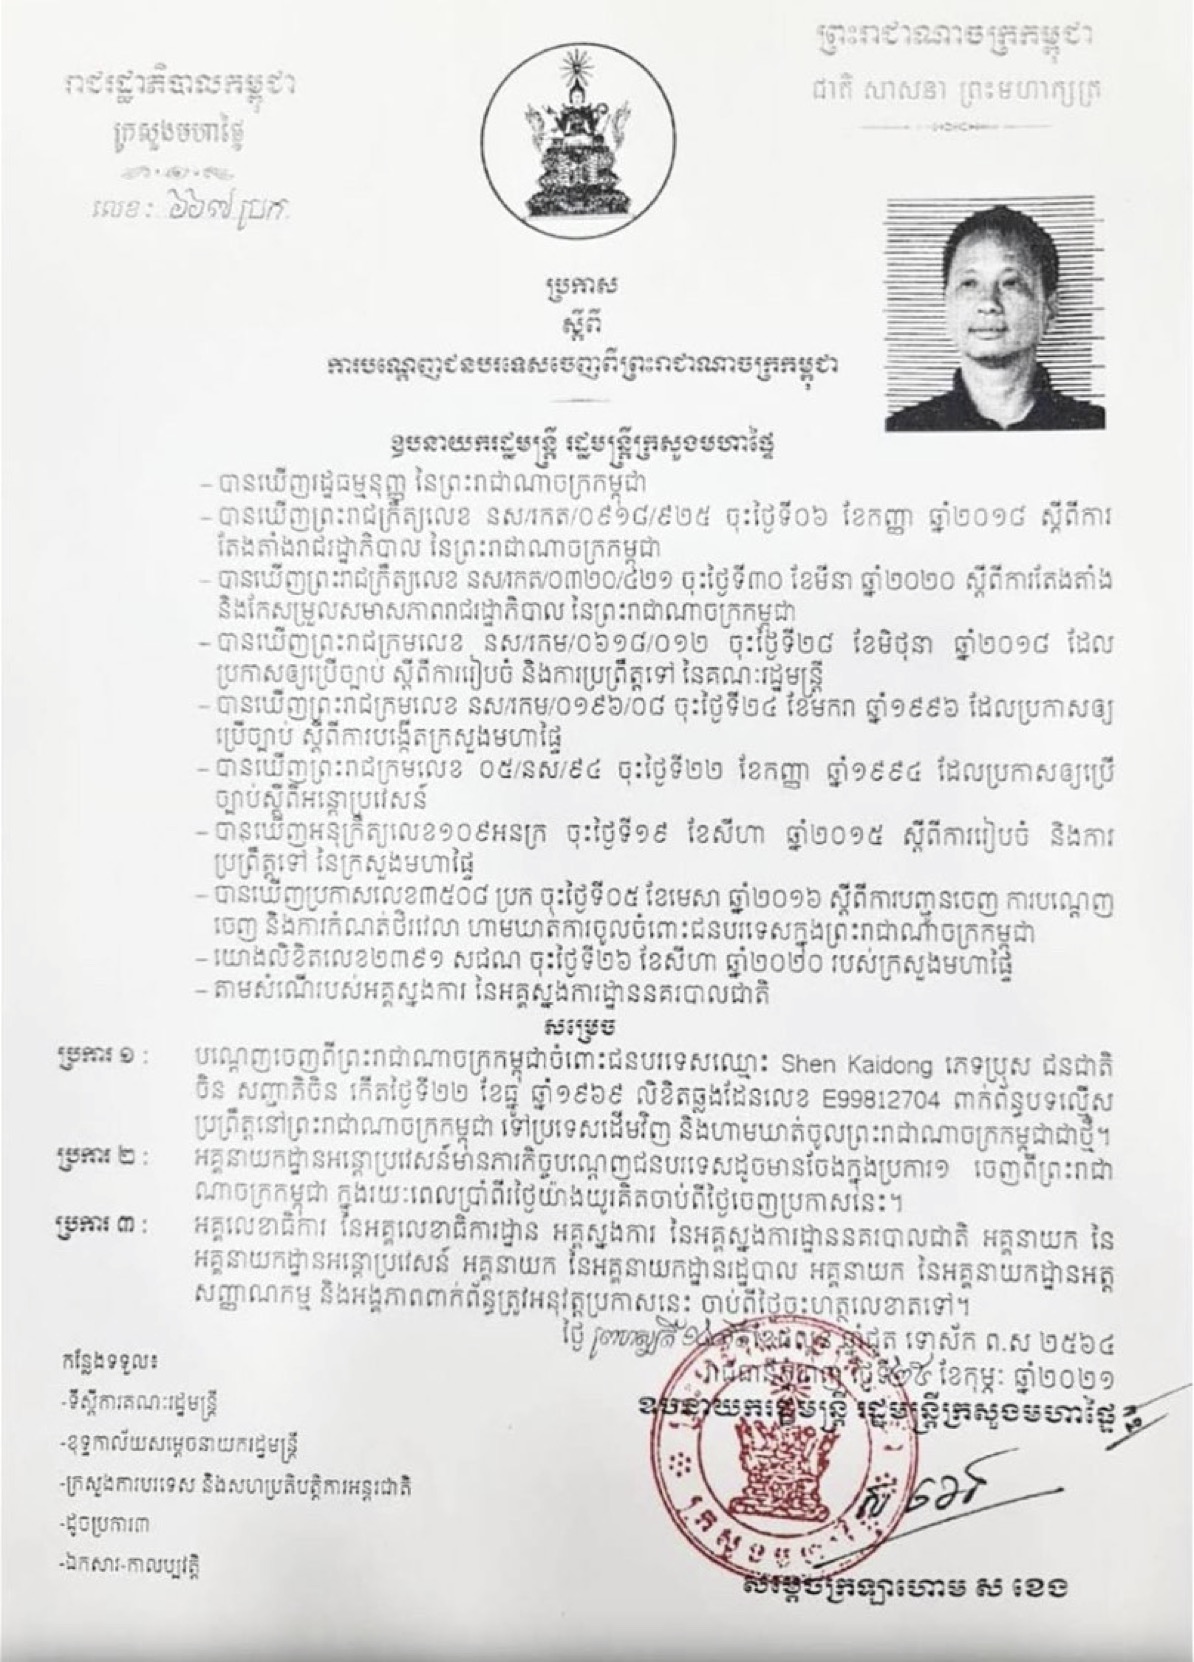 ព្រះរាជាណាចក្រកម្ពុជា
ជាតិ សាសនា ព្រះមហាក្សត្រ
រាជរដ្ឋាភិបាលកម្ពុជា
ក្រសួងមហាផ្ទៃ
លេខ: ៦៦៧ ប្រក
ប្រកាស
ស្តីពី
ការបណ្តេញជនបរទេសចេញពីព្រះរាជាណាចក្រកម្ពុជា
ឧបនាយករដ្ឋមន្ត្រី រដ្ឋមន្ត្រីក្រសួងមហាផ្ទៃ
– បានឃើញរដ្ឋធម្មនុញ្ញ នៃព្រះរាជាណាចក្រកម្ពុជា
– បានឃើញព្រះរាជក្រឹត្យលេខ នស/រកត/០៩១៨/៩២៥ ចុះថ្ងៃទី០៦ ខែកញ្ញា ឆ្នាំ២០១៨ ស្តីពីការ
តែងតាំងរាជរដ្ឋាភិបាល នៃព្រះរាជាណាចក្រកម្ពុជា
– បានឃើញព្រះរាជក្រឹត្យលេខ នស/រកត/០៣២០/៤២១ ចុះថ្ងៃទី៣០ ខែមីនា ឆ្នាំ២០២០ ស្តីពីការតែងតាំង
និងកែសម្រួលសមាសភាពរាជរដ្ឋាភិបាល នៃព្រះរាជាណាចក្រកម្ពុជា
– បានឃើញព្រះរាជក្រមលេខ នស/រកម/០៦១៨/០១២ ចុះថ្ងៃទី២៨ ខែមិថុនា ឆ្នាំ២០១៨ ដែល
ប្រកាសឲ្យប្រើច្បាប់ ស្តីពីការរៀបចំ និងការប្រព្រឹត្តទៅ នៃគណៈរដ្ឋមន្ត្រី
– បានឃើញព្រះរាជក្រមលេខ នស/រកម/០១៩៦/០៨ ចុះថ្ងៃទី២៤ ខែមករា ឆ្នាំ១៩៩៦ ដែលប្រកាសឲ្យ
ប្រើច្បាប់ ស្តីពីការបង្កើតក្រសួងមហាផ្ទៃ
– បានឃើញព្រះរាជក្រមលេខ ០៥/នស/៩៤ ចុះថ្ងៃទី២២ ខែកញ្ញា ឆ្នាំ១៩៩៤ ដែលប្រកាសឲ្យប្រើ
ច្បាប់ស្តីពីអន្តោប្រវេសន៍
– បានឃើញអនុក្រឹត្យលេខ១០៩អនក្រ ចុះថ្ងៃទី១៩ ខែសីហា ឆ្នាំ២០១៥ ស្តីពីការរៀបចំ និងការ
ប្រព្រឹត្តទៅ នៃក្រសួងមហាផ្ទៃ
– បានឃើញប្រកាសលេខ៣៥០៨ ប្រក ចុះថ្ងៃទី០៥ ខែមេសា ឆ្នាំ២០១៦ ស្តីពីការបញ្ជូនចេញ ការបណ្តេញ
ចេញ និងការកំណត់ថិរវេលា ហាមឃាត់ការចូលចំពោះជនបរទេសក្នុងព្រះរាជាណាចក្រកម្ពុជា
– យោងលិខិតលេខ២៣៩១ សជណ ចុះថ្ងៃទី២៦ ខែសីហា ឆ្នាំ២០២០ របស់ក្រសួងមហាផ្ទៃ
– តាមសំណើរបស់អគ្គស្នងការ នៃអគ្គស្នងការដ្ឋាននគរបាលជាតិ
សម្រេច
ប្រការ ១ : បណ្តេញចេញពីព្រះរាជាណាចក្រកម្ពុជាចំពោះជនបរទេសឈ្មោះ Shen Kaidong ភេទប្រុស ជនជាតិ
ចិន សញ្ជាតិចិន កើតថ្ងៃទី២២ ខែធ្នូ ឆ្នាំ១៩៦៩ លិខិតឆ្លងដែនលេខ E99812704 ពាក់ព័ន្ធបទល្មើស
ប្រព្រឹត្តនៅព្រះរាជាណាចក្រកម្ពុជា ទៅប្រទេសដើមវិញ និងហាមឃាត់ចូលព្រះរាជាណាចក្រកម្ពុជាជាថ្មី។
ប្រការ ២ : អគ្គនាយកដ្ឋានអន្តោប្រវេសន៍មានភារកិច្ចបណ្តេញជនបរទេសដូចមានចែងក្នុងប្រការ១ ចេញពីព្រះរាជា
ណាចក្រកម្ពុជា ក្នុងរយៈពេលប្រាំពីរថ្ងៃយ៉ាងយូរគិតចាប់ពីថ្ងៃចេញប្រកាសនេះ។
ប្រការ ៣ : អគ្គលេខាធិការ នៃអគ្គលេខាធិការដ្ឋាន អគ្គស្នងការ នៃអគ្គស្នងការដ្ឋាននគរបាលជាតិ អគ្គនាយក នៃ
អគ្គនាយកដ្ឋានអន្តោប្រវេសន៍ អគ្គនាយក នៃអគ្គនាយកដ្ឋានរដ្ឋបាល អគ្គនាយក នៃអគ្គនាយកដ្ឋានអត្ត
សញ្ញាណកម្ម និងអង្គភាពពាក់ព័ន្ធត្រូវអនុវត្តប្រកាសនេះ ចាប់ពីថ្ងៃចុះហត្ថលេខាតទៅ។
ថ្ងៃ ព្រហស្បតិ៍ ខែផល្គុន ឆ្នាំជូត ទោស័ក ព.ស ២៥៦៤
រាជធានីភ្នំពេញ ថ្ងៃទី២៥ ខែកុម្ភៈ ឆ្នាំ២០២១
ឧបនាយករដ្ឋមន្ត្រី រដ្ឋមន្ត្រីក្រសួងមហាផ្ទៃ
ស ខេង
ក្រសួងមហាផ្ទៃ
សម្តេចក្រឡាហោម ស ខេង
កន្លែងទទួល៖
-ទីស្តីការគណៈរដ្ឋមន្ត្រី
-ខុទ្ទកាល័យសម្តេចនាយករដ្ឋមន្ត្រី
-ក្រសួងការបរទេស និងសហប្រតិបត្តិការអន្តរជាតិ
-ដូចប្រការ៣
-ឯកសារ-កាលប្បវត្តិ